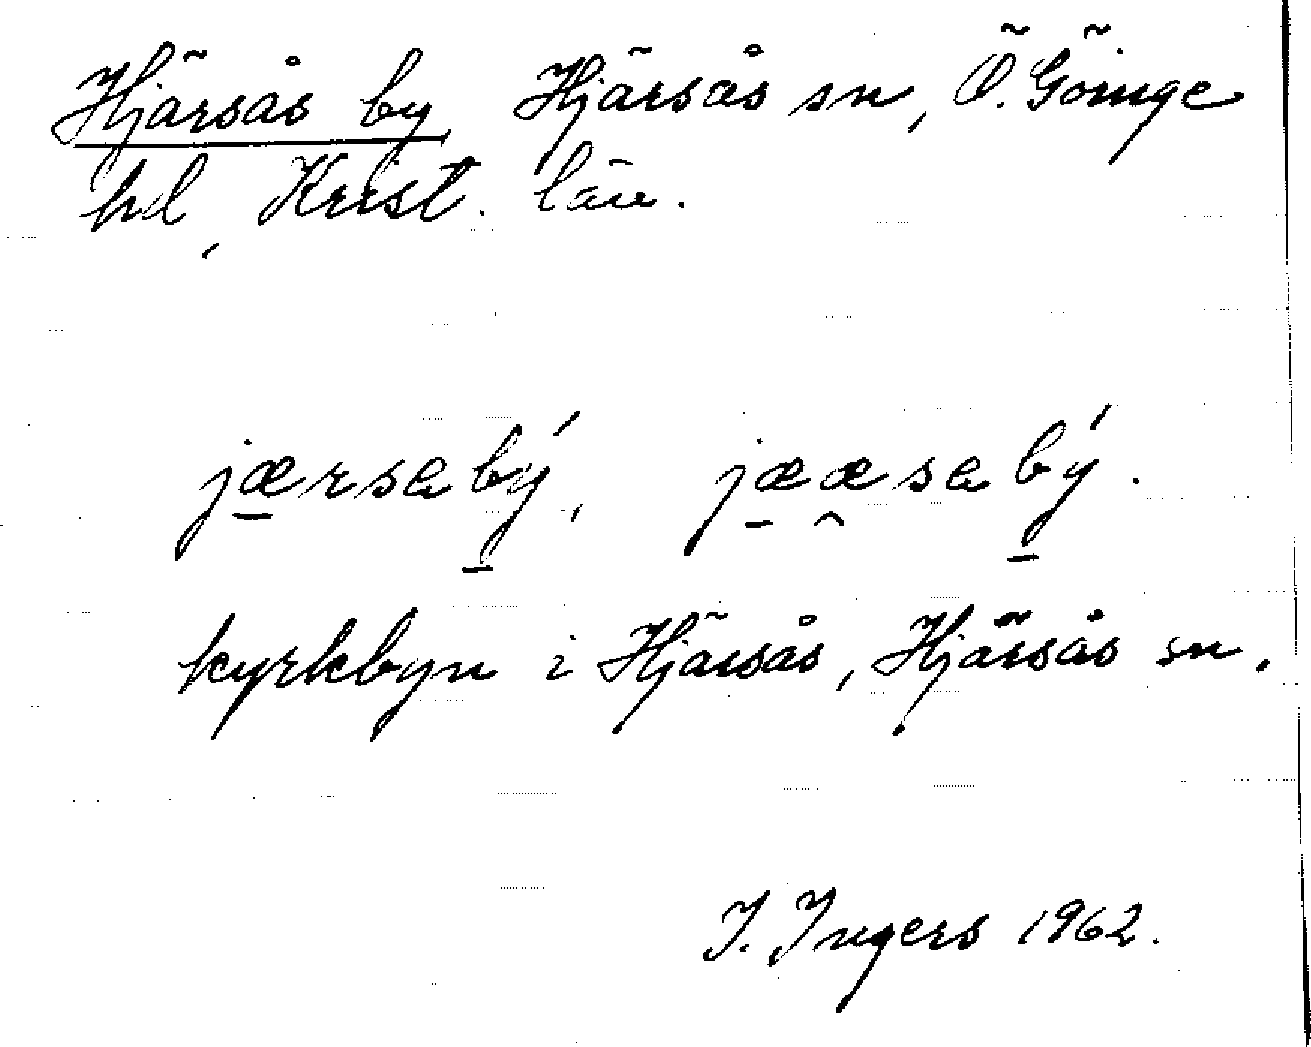 Hjärsås by Hjärsås sn, Ö. Göinge
hd, Krist. län.
jærsabý, jææsabý.
kyrkbyn i Hjärsås, Hjärsås sn.
I. Ingers 1962.